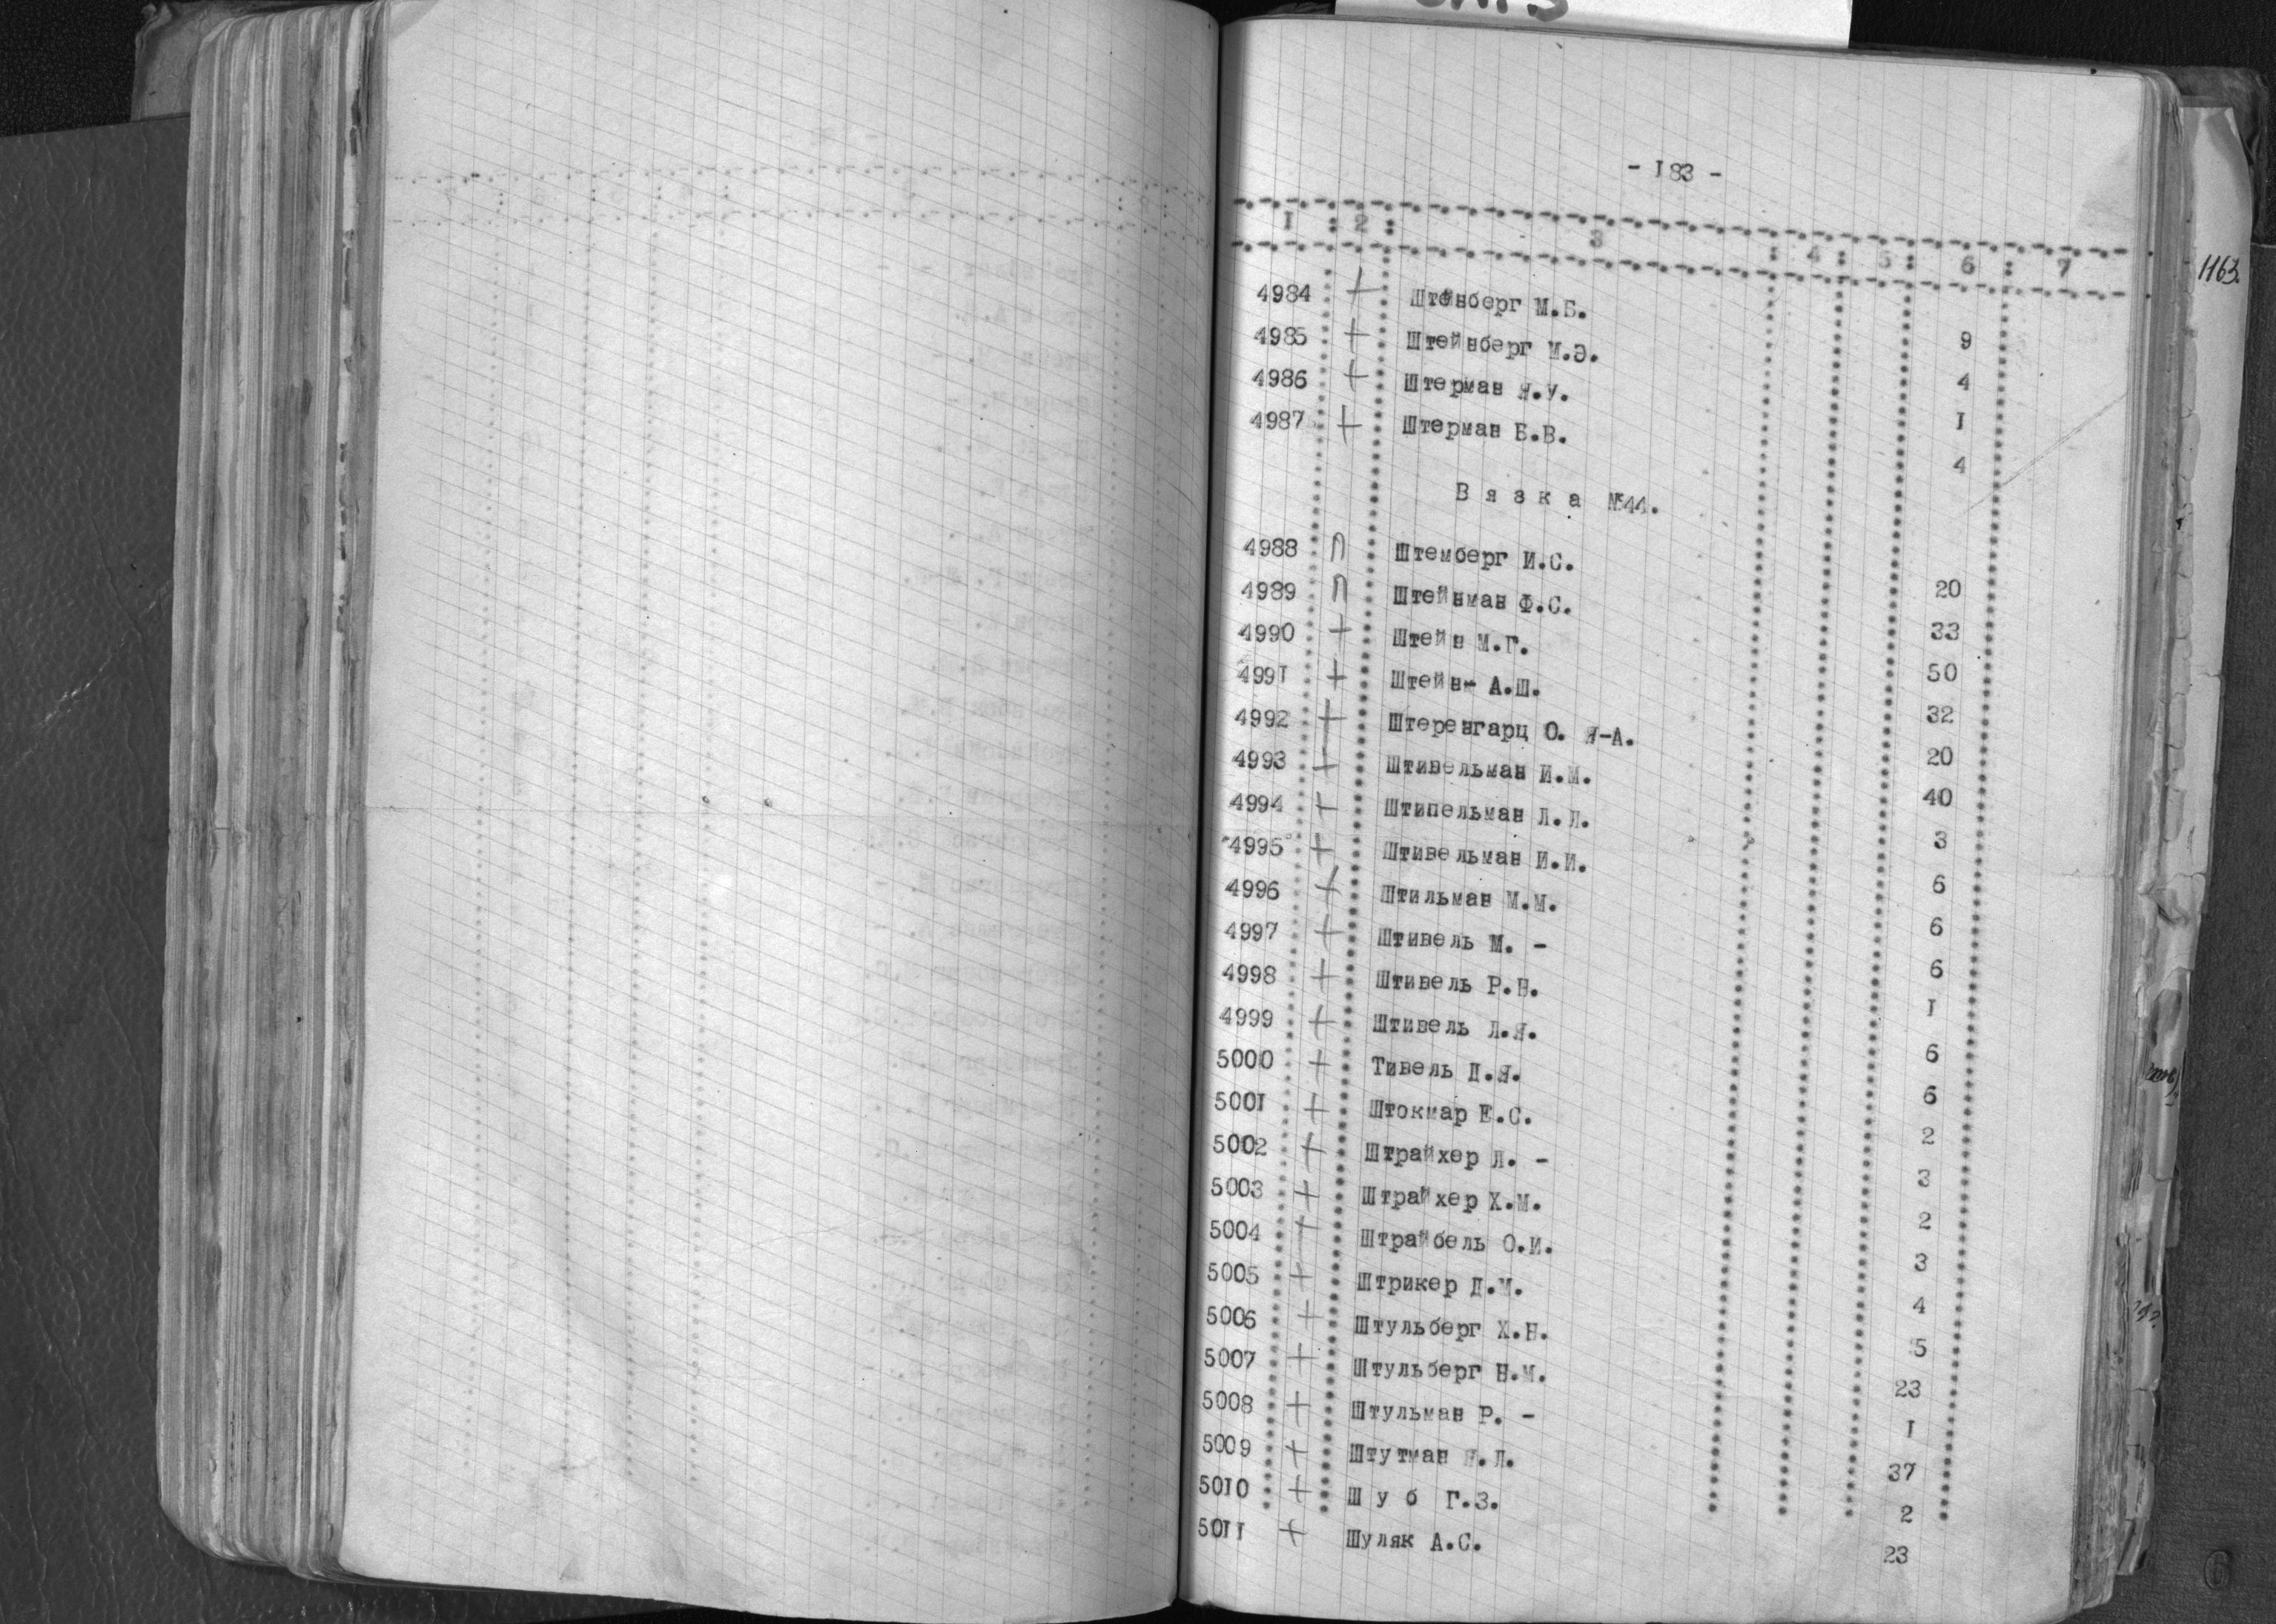 - I83 -
I : 2 : 3 : 4 : 5 : 6 : 7
1163
4984 + Штейнберг М.Б. 9
4985 + Штейнберг М.Э. 4
4986 + Штерман Я.У. I
4987 + Штерман Б.В. 4
В я з к а №44.
4988 П Штемберг И.С. 20
4989 П Штейнман Ф.С. 33
4990 + Штейн М.Г. 50
499I + Штейн- А.Ш. 32
4992 + Штеренгарц О. Я-А. 20
4993 + Штивельман И.М. 40
4994 + Штипельман Л.Л. 3
4995 + Штивельман И.И. 6
4996 + Штильман М.М. 6
4997 + Штивель М. - 6
4998 + Штивель Р.Н. I
4999 + Штивель Л.Я. 6
5000 + Тивель Д.Я. 6
500I + Штокмар Е.С. 2
5002 + Штрайхер Л. - 3
5003 + Штрайхер Х.М. 2
5004 + Штрайбель О.И. 3
5005 + Штрикер Д.М. 4
5006 + Штульберг Х.Н. 5
5007 + Штульберг Н.М. 23
5008 + Штульман Р. - I
5009 + Штутман Я.Л. 37
50I0 + Ш у б Г.З. 2
50II + Шуляк А.С. 23